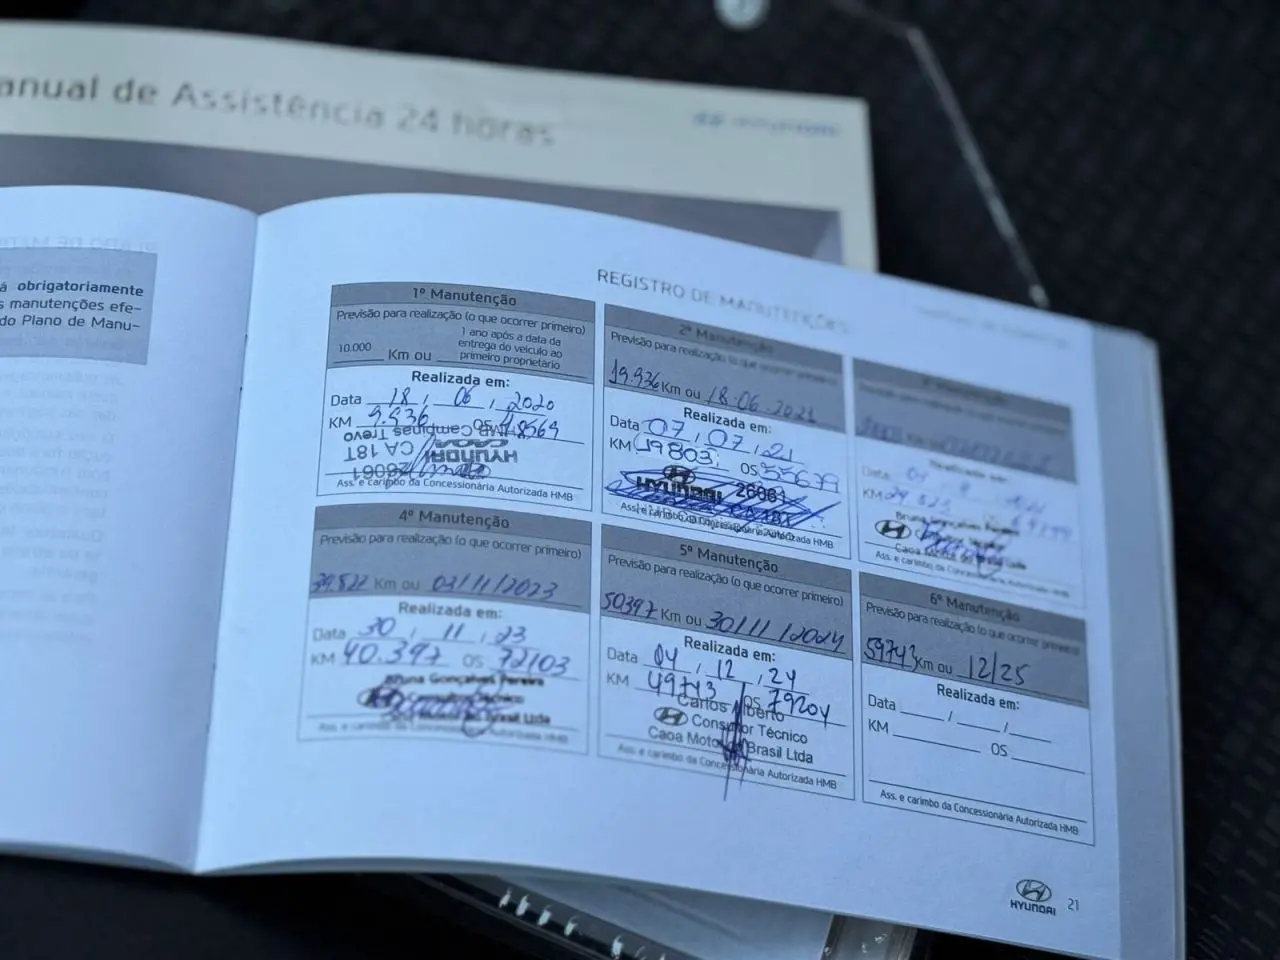 anual de Assistência 24 horas
á obrigatoriamente
s manutenções efe-
do Plano de Manu-
REGISTRO DE MANUTENÇÕES
1º Manutenção
Previsão para realização (o que ocorrer primeiro)
10.000 Km ou 1 ano após a data da
entrega do veículo ao
primeiro proprietário
Realizada em:
Data 18, 06, 2020
KM 9.936 OS 48569
HMB Campinas Trevo
CA 18T HYUNDAI
CAOA
26061
Ass. e carimbo da Concessionária Autorizada HMB
2º Manutenção
Previsão para realização (o que ocorrer primeiro)
19.936 Km ou 18.06.2021
Realizada em:
Data 07, 07, 21
KM 19803, OS 55679
HYUNDAI 26061
CA 18T
Ass. e carimbo da Concessionária Autorizada HMB
Data
KM 29.823
Bruna Gonçalves
Caoa Motor do Brasil Ltda
Ass. e carimbo da Concessionária Autorizada HMB
4º Manutenção
Previsão para realização (o que ocorrer primeiro)
39.822 Km ou 03/11/2023
Realizada em:
Data 30, 11, 23
KM 40.397 OS 72103
Bruna Gonçalves Pereira
Consultora Técnico
do Brasil Ltda
Ass. e carimbo da Concessionária Autorizada HMB
5º Manutenção
Previsão para realização (o que ocorrer primeiro)
50397 Km ou 30/11/2024
Realizada em:
Data 04, 12, 24
KM 49743 OS 79204
Carlos Alberto
Consultor Técnico
Caoa Motor do Brasil Ltda
Ass. e carimbo da Concessionária Autorizada HMB
6º Manutenção
Previsão para realização (o que ocorrer primeiro)
59743 Km ou 12/25
Realizada em:
Data / /
KM OS
Ass. e carimbo da Concessionária Autorizada HMB
HYUNDAI 21